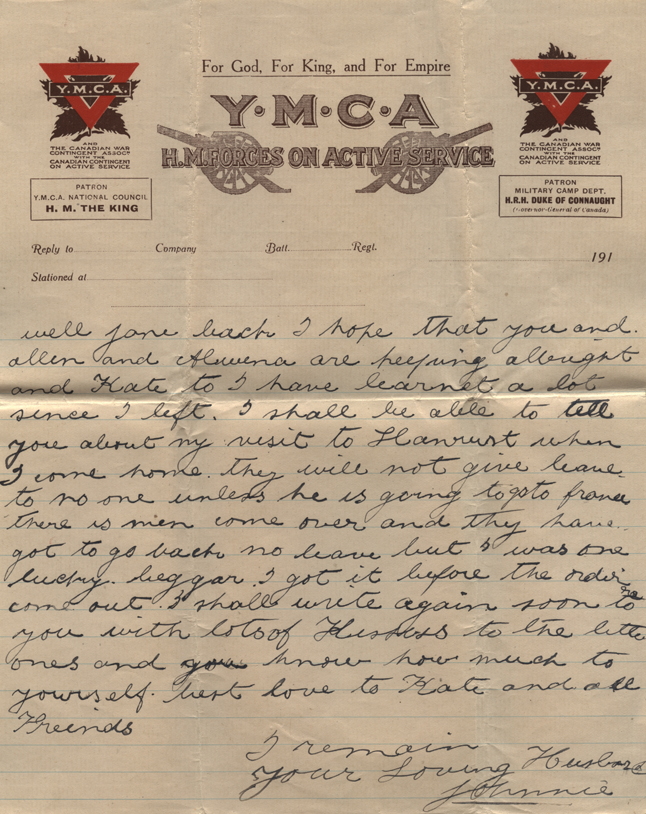 For God, For King, and For Empire
Y·M·C·A
H.M. FORCES ON ACTIVE SERVICE
Y.M.C.A.
AND
THE CANADIAN WAR
CONTINGENT ASSOCN
WITH THE
CANADIAN CONTINGENT
ON ACTIVE SERVICE
PATRON
Y.M.C.A. NATIONAL COUNCIL
H. M. THE KING
Y.M.C.A.
AND
THE CANADIAN WAR
CONTINGENT ASSOCN
WITH THE
CANADIAN CONTINGENT
ON ACTIVE SERVICE
PATRON
MILITARY CAMP DEPT.
H.R.H. DUKE OF CONNAUGHT
(Governor-General of Canada)
Reply to Company Batt. Regt. 191
Stationed at
well jane back I hope that you and.
allen and Alwena are keeping allright
and Kate to I have learnet a lot
since I left. I shall be able to tell
you about my visit to Llanrwst when
I come home. they will not give leave.
to no one unless he is going to go to france
there is men come over and thy have
got to go back no leave but I was one
lucky. beggar. I got it before the order
come out. I shall write again soon to
you with lots of Kissess to the little
ones and you know how much to
yourself. best love to Kate and all
Freinds
I remain
Your Loving Husband
Johnnie